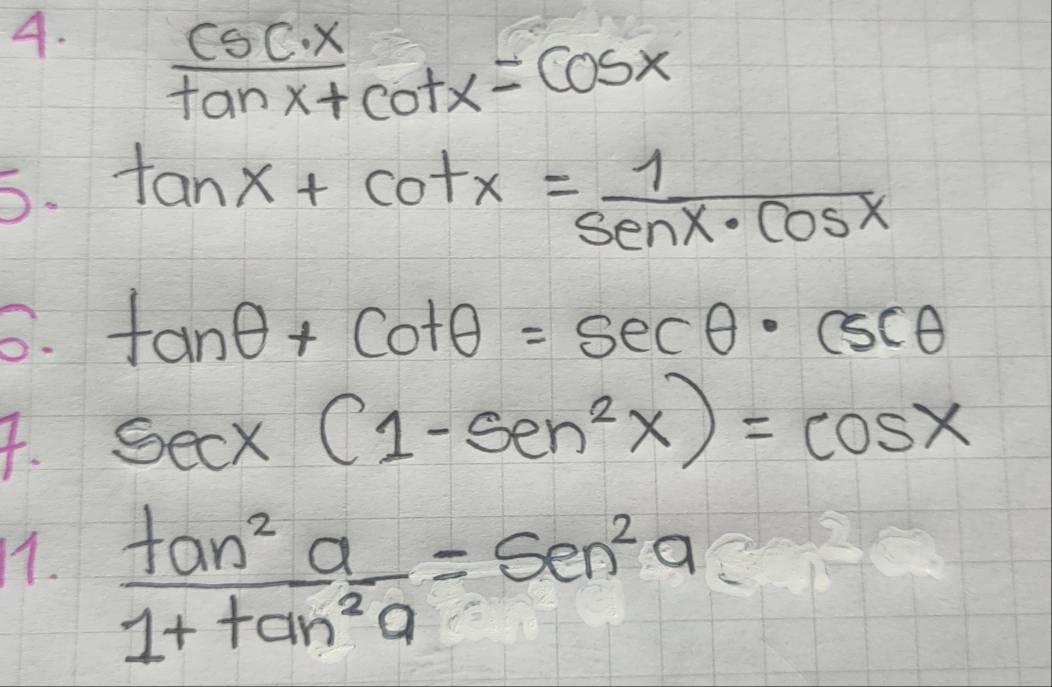 4. csc·x / tanx + cotx = cosx
5. tanx + cotx = 1 / senx · cosx
6. tanθ + cotθ = secθ · cscθ
7. secx (1 - sen²x) = cosx
11. tan² a / 1 + tan² a = sen² a